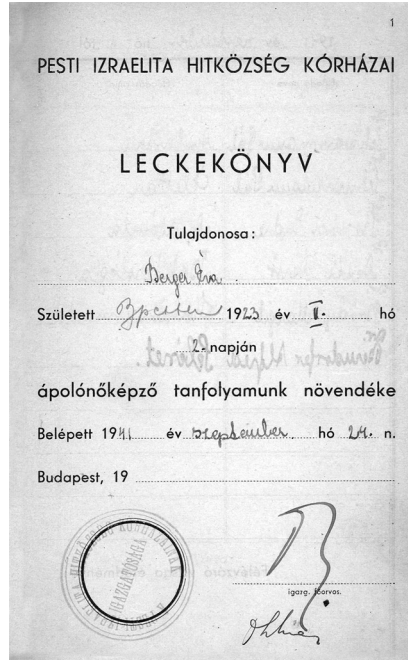 1
PESTI IZRAELITA HITKÖZSÉG KÓRHÁZAI
LECKEKÖNYV
Tulajdonosa:
Berger Éva
Született Bpesten 1923 év II. hó
2. napján
ápolónőképző tanfolyamunk növendéke
Belépett 1941 év szeptember hó 24. n.
Budapest, 19
IGAZGATÓSÁGA
igazg. főorvos.